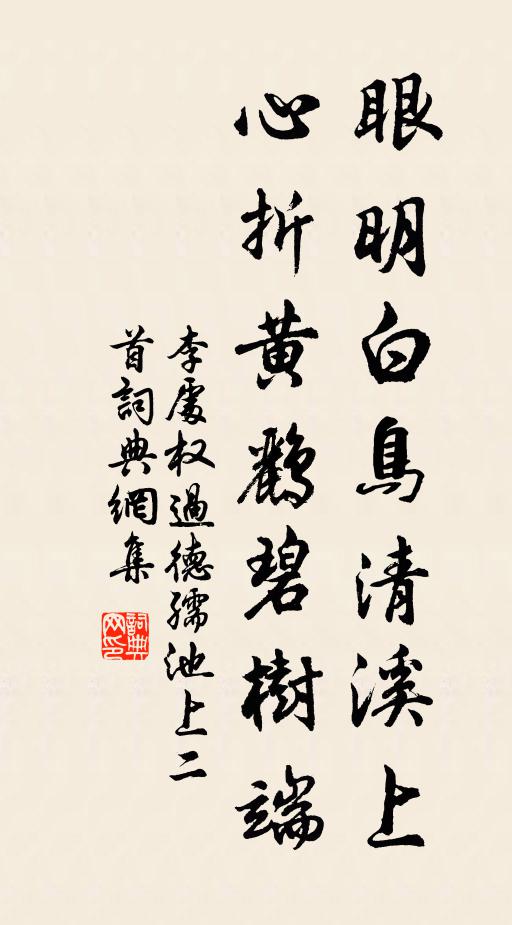 眼明白鳥清溪上
心折黄鸝碧樹端
李處权過德孺池上二
首詞典網集
詞典
网印